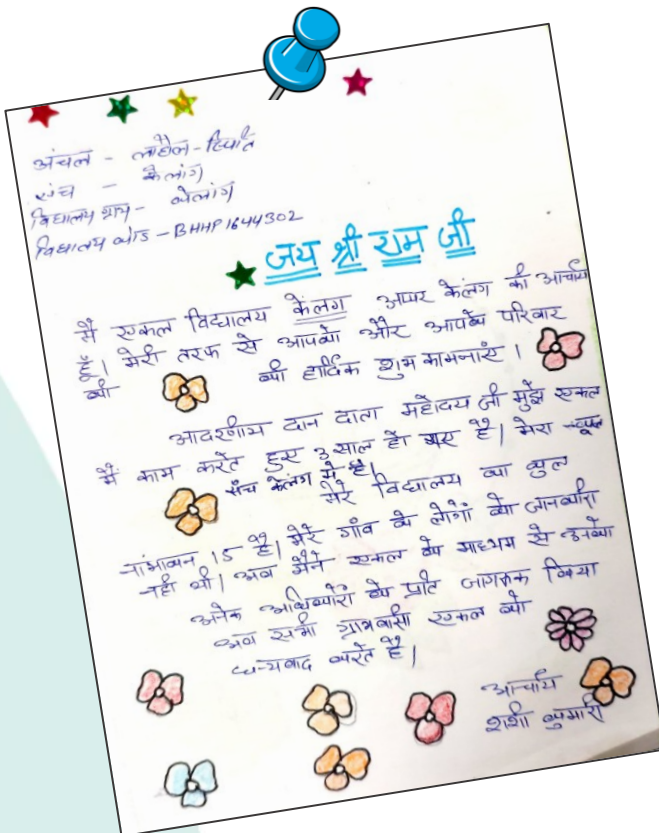 अंचल - लाहौल-स्पिति
संच - केलांग
विद्यालय ग्राम - केलांग
विद्यालय कोड - BHHP1644302
जय श्री राम जी
मैं एकल विद्यालय केलंग अपर केलंग की आचार्य
हूँ। मेरी तरफ से आपको और आपके परिवार
को की हार्दिक शुभ कामनाएं।
आदरणीय दान दाता महोदय जी मुझे एकल
में काम करते हुए 3 साल हो गए है। मेरा स्कूल
संच केलंग में है।
मेरे विद्यालय का कुल
नांमाकन 15 है। मेरे गाँव के लोगों को जानकारी
नही थी। अब मैंने एकल के माध्यम से उनको
अनेक अधिकारों के प्रति जागरूक किया
अब सभी ग्रामवासी एकल को
धन्यवाद करते है।
आचार्य
शशी कुमारी